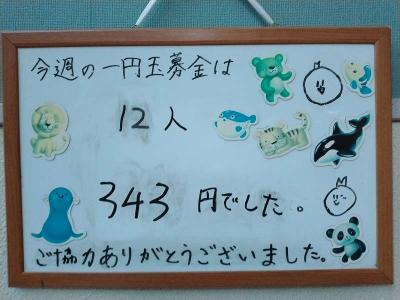 今週の一円玉募金は
12人
343円でした。
ご協力ありがとうございました。